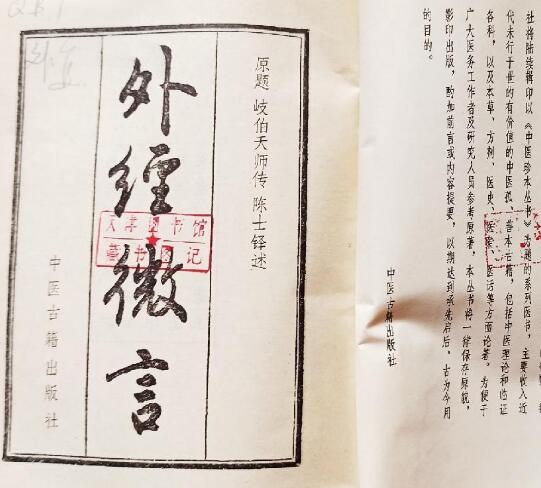 原题 岐伯天师传 陈士铎述
外经微言
天津图书馆
藏书图记
中医古籍出版社
社将陆续辑印以《中医珍本丛书》为题的系列医书，主要收入近
代未行于世的有价值的中医孤、善本古籍，包括中医理论和临证
各科，以及本草、方剂、医史、医案、医话等方面论著。为便于
广大医务工作者及研究人员参考原著，本丛书将一律保存原貌，
影印出版，酌加前言或内容提要，以期达到承先启后、古为今用
的目的。
中医古籍出版社